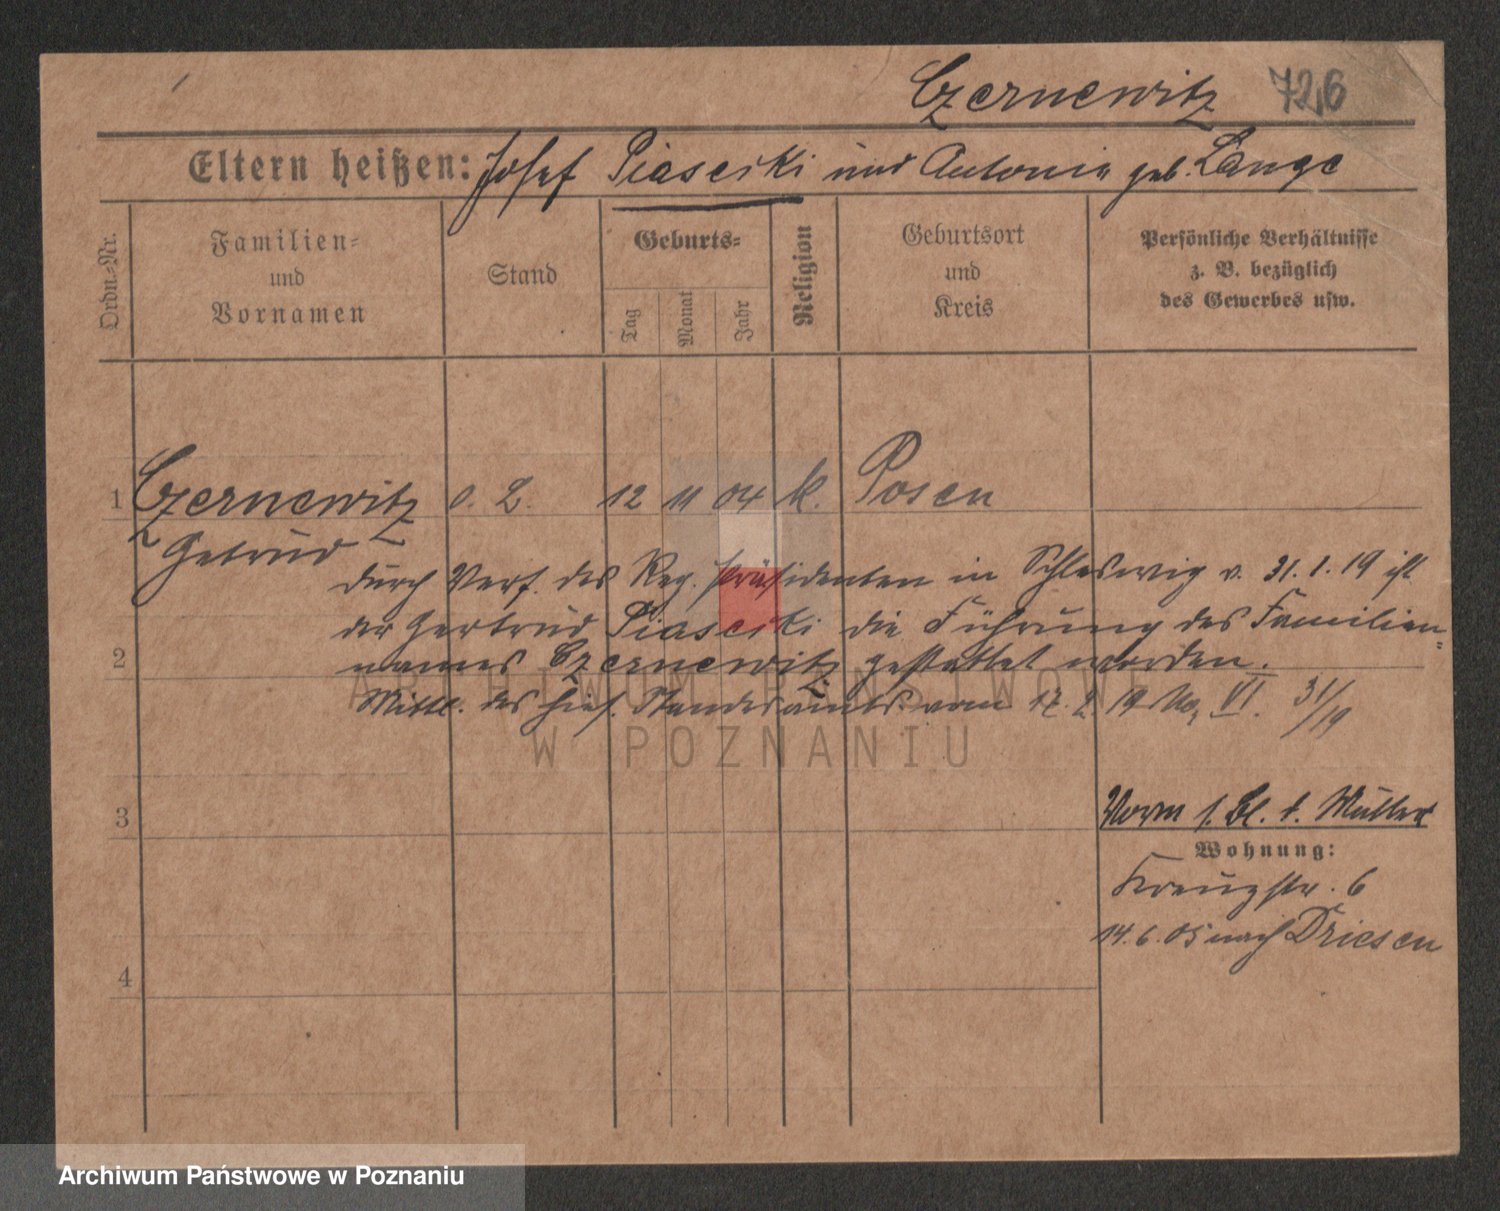 Czernewitz 726
Eltern heißen: Josef Piasecki und Antonie geb. Lange
Ordn.-Nr.
Familien-
und
Vornamen
Stand
Geburts-
Tag
Monat
Jahr
Religion
Geburtsort
und
Kreis
Persönliche Verhältnisse
z. B. bezüglich
des Gewerbes usw.
1 Czernewitz o. 2. 12 11 04 k. Posen
Getrud
durch Verf. des Reg. Präsidenten in Schleswig v. 31.1.19 ist
der Gertrud Piasecki die Führung des Familien-
2
names Czernewitz gestattet worden.
Mittl. des hies. Standesamts vom 17.2.19 No, VI. 31/19
3
Vorm s. Bl. f. Müller
Wohnung:
Kreuzstr. 6
14.6.05 nach Driesen
4
ARCHIWUM PAŃSTWOWE
W POZNANIU
Archiwum Państwowe w Poznaniu